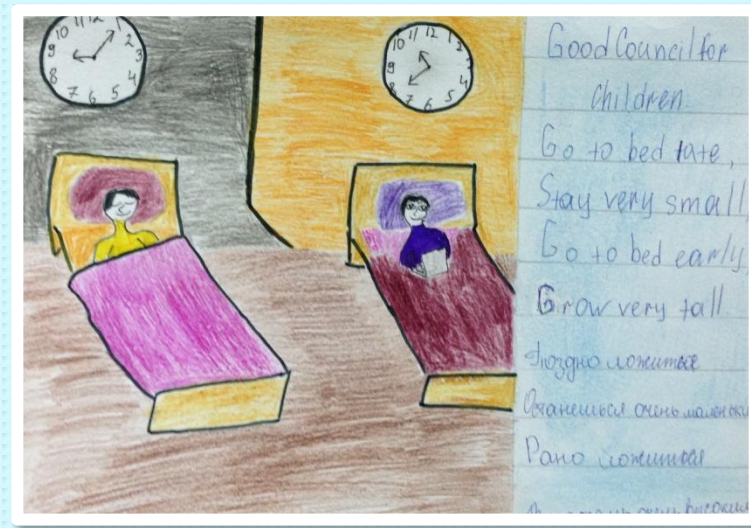 Good Council for
Children
Go to bed late,
Stay very small
Go to bed early
Grow very tall
Поздно ложиться
Останешься очень маленьким
Рано ложиться
очень высоким